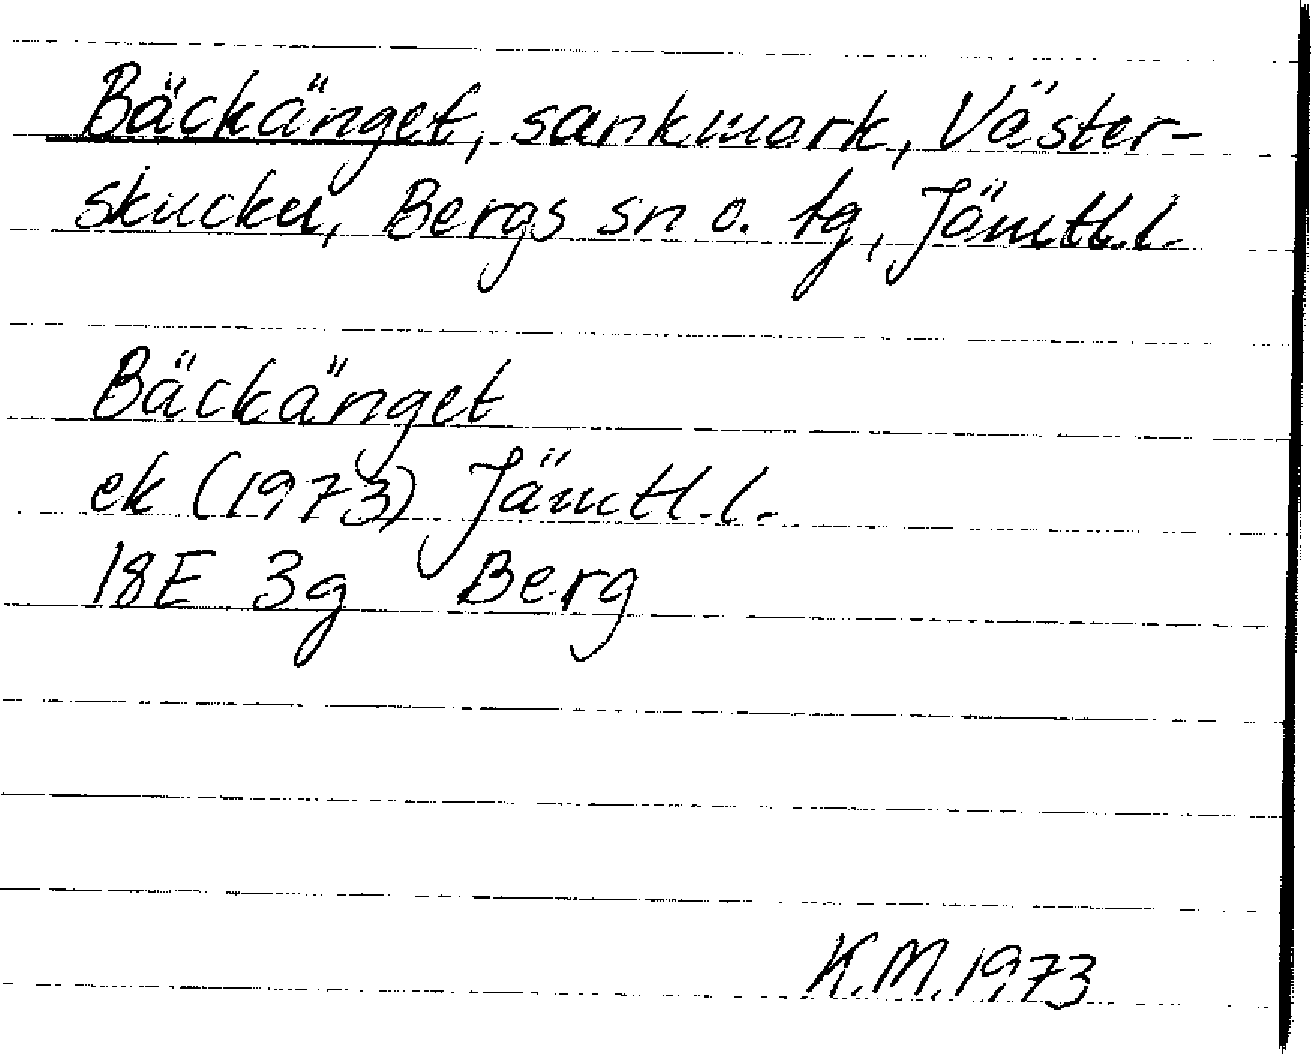 Bäckänget, sankmark, Väster-
skucku, Bergs sn o. tg, Jämtl.l.
Bäckänget
ek (1973) Jämtl.l.
18E 3g Berg
K.M. 1973